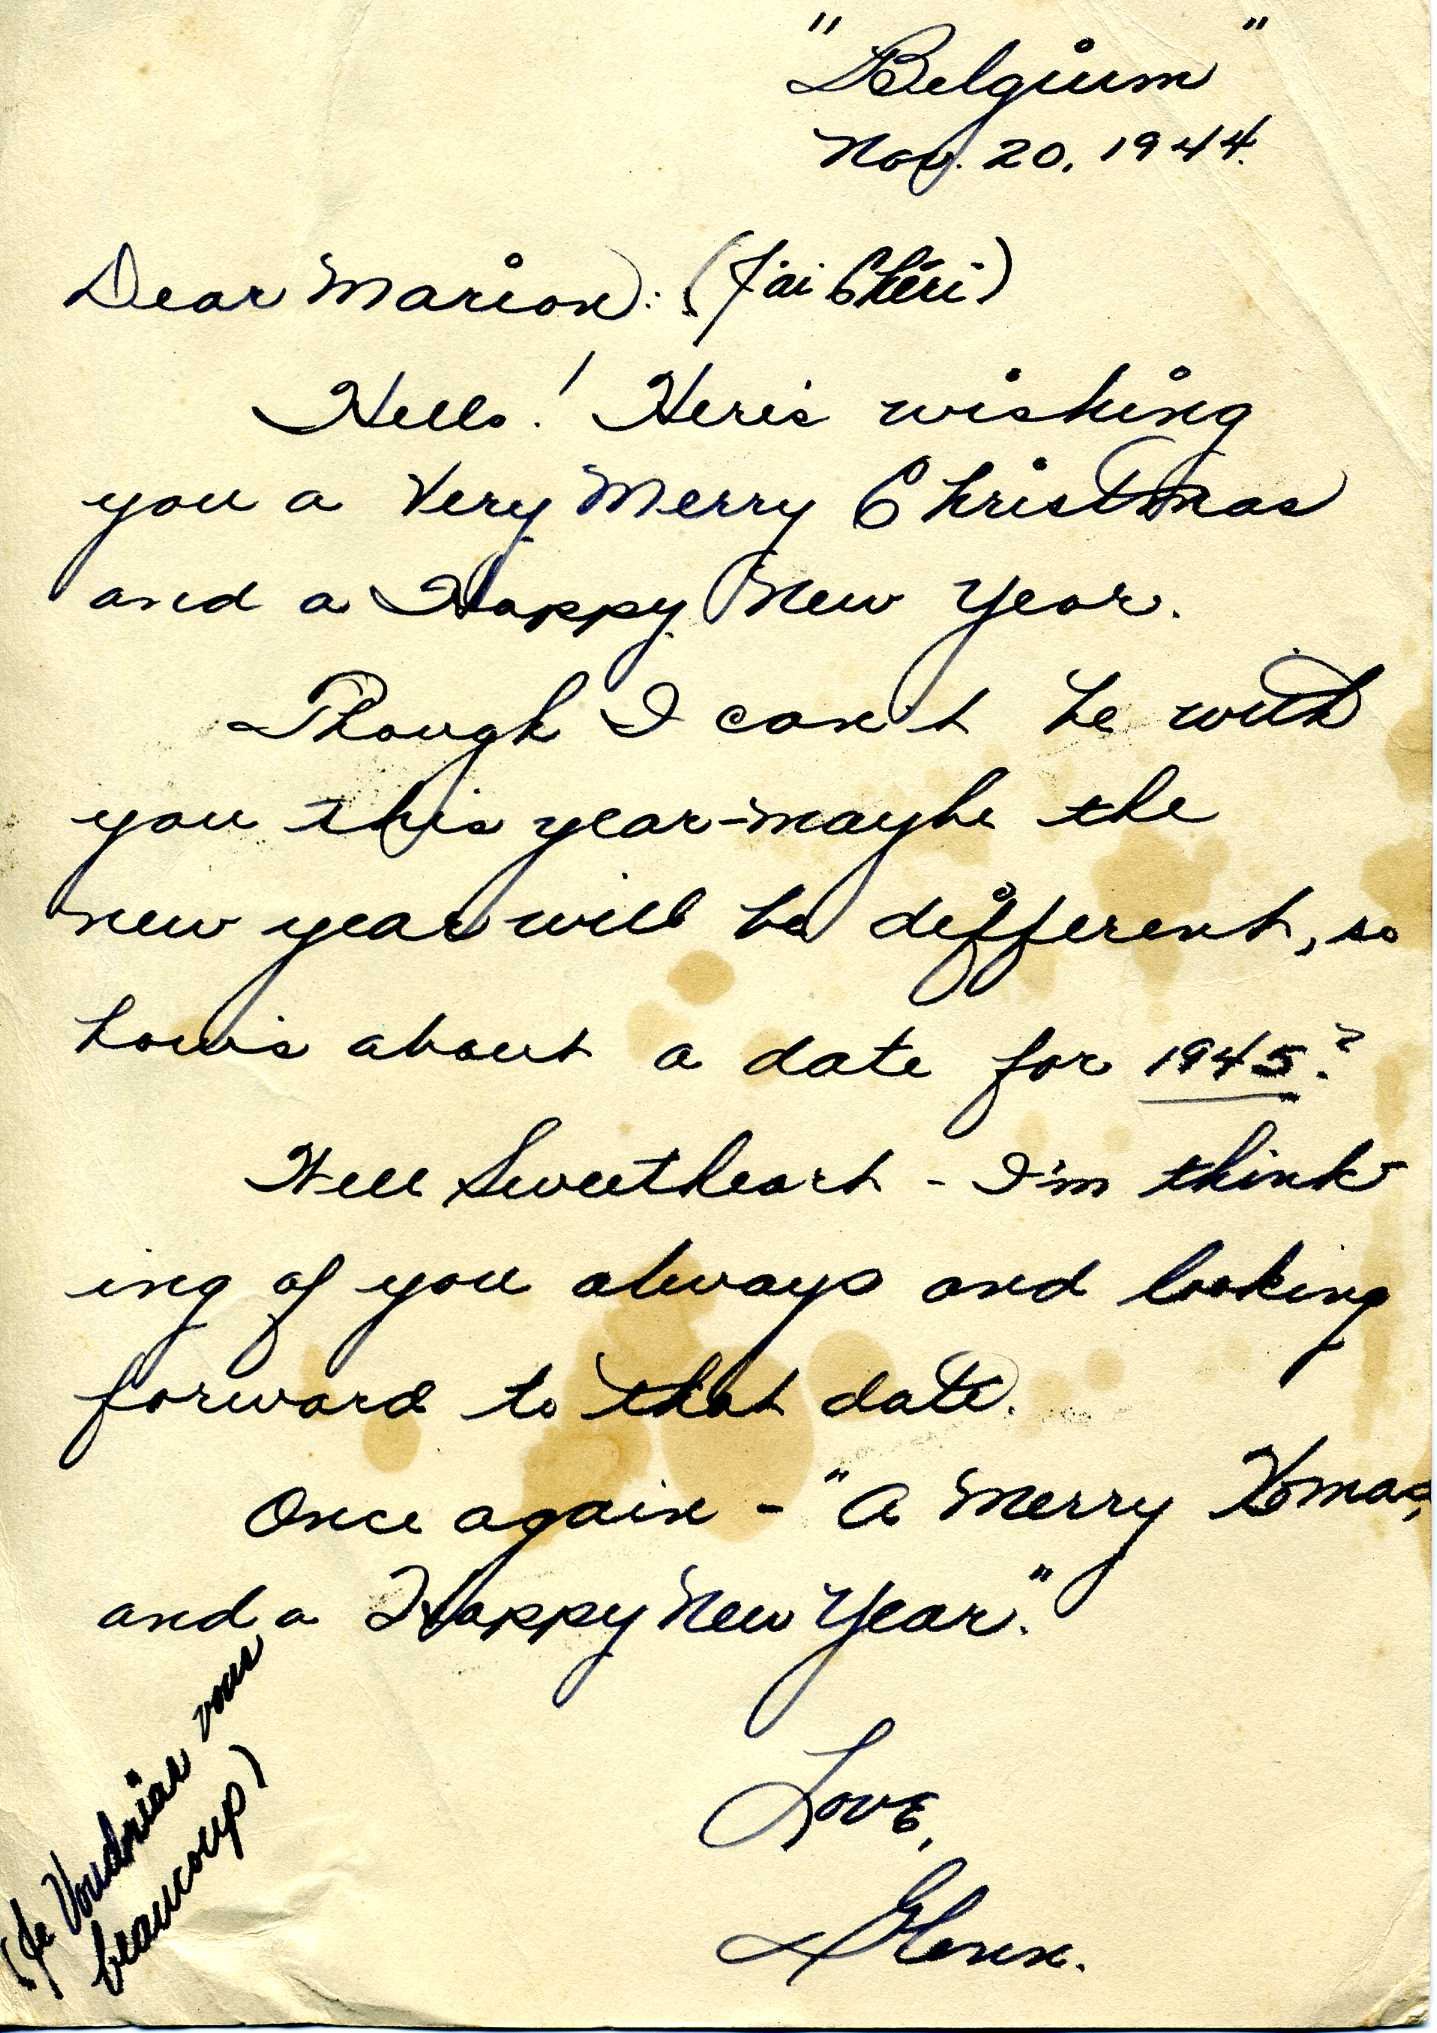 "Belgium"
Nov. 20, 1944.
Dear Marion: (J'ai Chéri)
Hello! Here's wishing
you a Very Merry Christmas
and a Happy New Year.
Though I can't be with
you this year-maybe the
new year will be different, so
how's about a date for 1945?
Well Sweetheart - I'm think-
ing of you always and looking
forward to that date.
Once again - "A Merry Xmas,
and a Happy New Year."
Love,
Glenn.
(Je Voudrias vous
beaucoup)